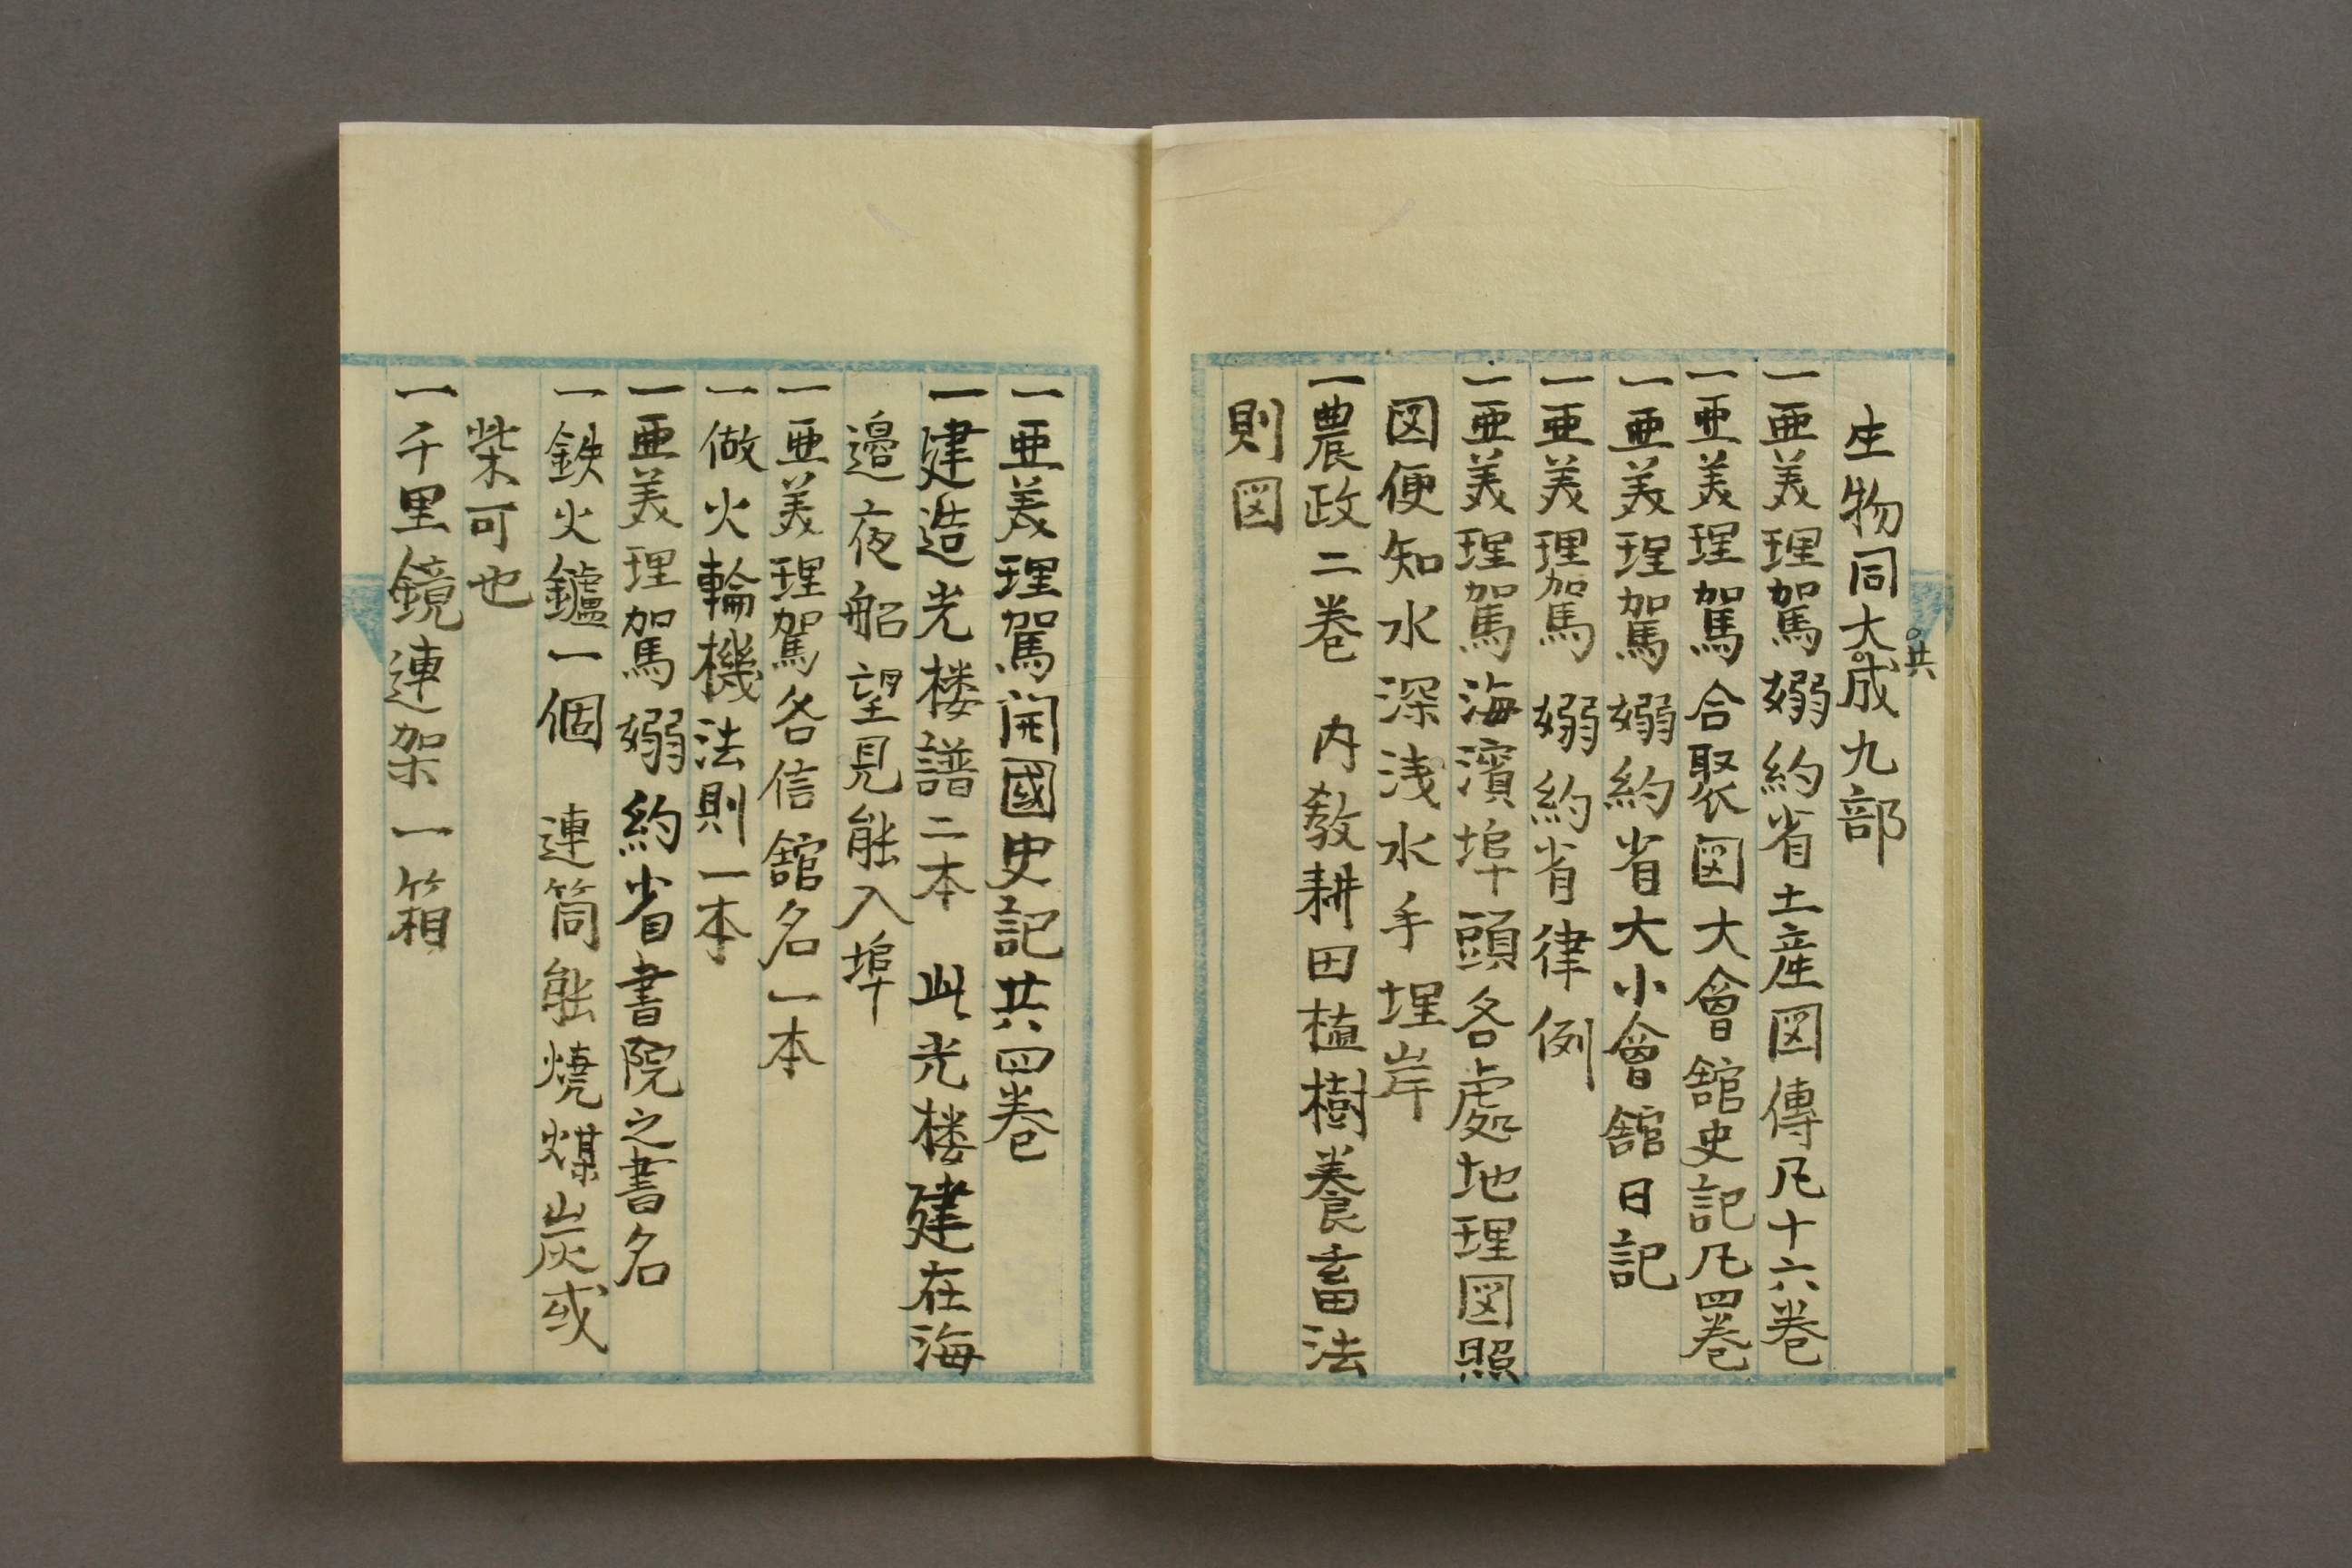 生物同大成九部
共
一亜美理駕嫋約省土産図傳凡十六巻
一亜美理駕合聚図大會舘史記凡四巻
一亜美理駕嫋約省大小會舘日記
一亜美理駕嫋約省律例
一亜美理駕海濱埠頭各處地理図照
図便知水深浅水手埋岸
一農政二巻　内教耕田植樹養畜法
則図
一亜美理駕開國史記共四巻
一建造光楼譜二本　此光楼建在海
邉夜船望見能入埠
一亜美理駕各信舘名一本
一做火輪機法則一本
一亜美理駕嫋約省書院之書名
一鉄火鑪一個　連筒能焼煤炭或
柴可也
一千里鏡連架一箱